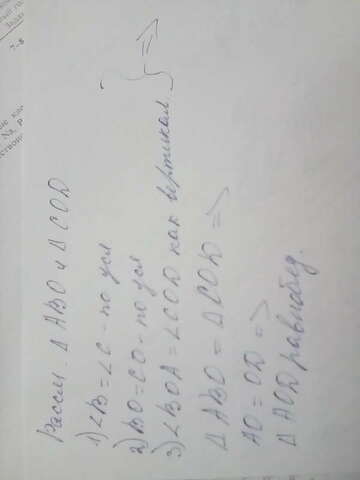 Рассм. Δ ABO и Δ COD
1) ∠B = ∠C - по усл
2) BO = CO - по усл
3) ∠BOA = ∠COD как вертикал. } =>
Δ ABO = Δ COD =>
AO = OD =>
Δ AOD равнобед.
7-8